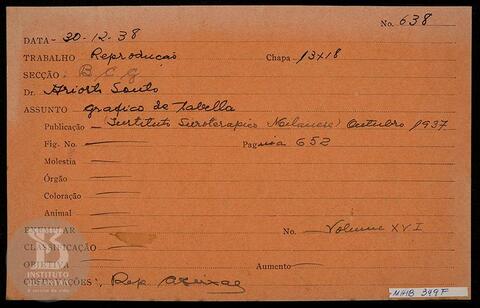 No. 638
DATA - 30-12-38
TRABALHO Reproducção Chapa 13x18
SECÇÃO: B. C. G.
Dr. Ariosto Souto
ASSUNTO Grafico de Tabella
Publicação (Instituto Sieroterapico Milanese) Outubro 1937
Fig. No. Pagina 652
Molestia
Órgão
Coloração
Animal
EXEMPLAR No. Volume XVI
CLASSIFICAÇÃO
OBJETIVA Aumento
OBSERVAÇÕES: Rep.
INSTITUTO BUTANTAN
A serviço da vida
MHIB 349F